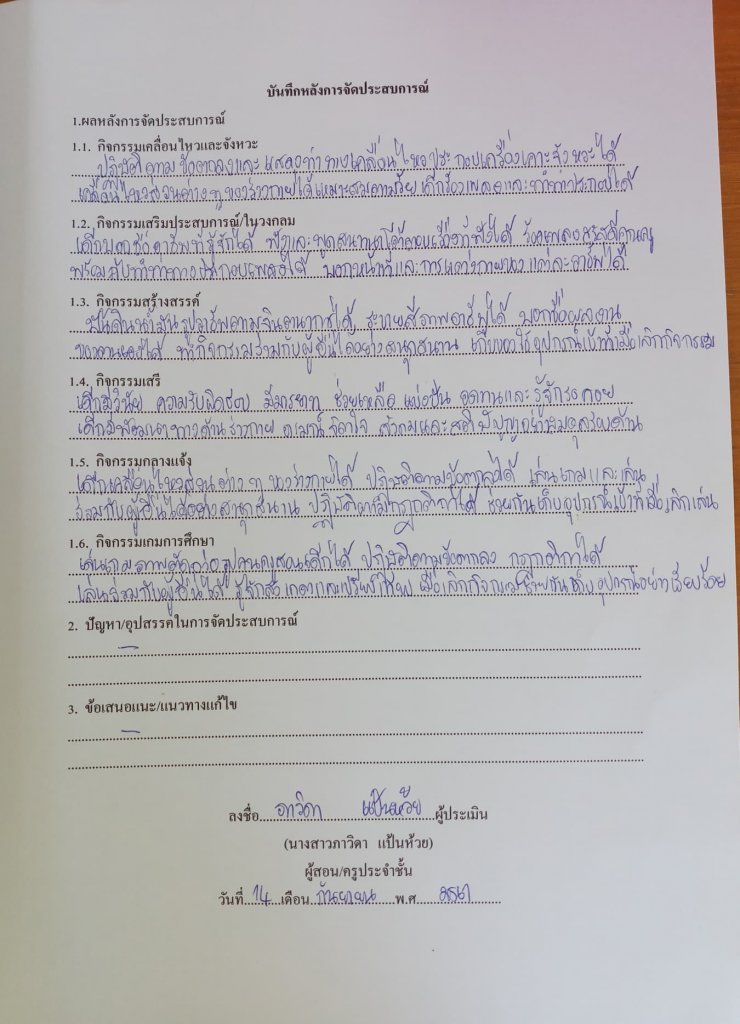 บันทึกหลังการจัดประสบการณ์
1.ผลหลังการจัดประสบการณ์
1.1. กิจกรรมเคลื่อนไหวและจังหวะ
ปฏิบัติตามข้อตกลงและแสดงท่าทางเคลื่อนไหวประกอบเครื่องเคาะจังหวะได้
เคลื่อนไหวส่วนต่างๆของร่างกายได้เหมาะสมตามวัย เด็กร้องเพลงและทำท่าประกอบได้
1.2. กิจกรรมเสริมประสบการณ์/ในวงกลม
เด็กบอกชื่ออาชีพที่รู้จักได้ ฟังและพูดสนทนาโต้ตอบเรื่องที่ฟังได้ ร้องเพลงสวัสดีคุณครู
พร้อมกับทำท่าทางประกอบเพลงได้ บอกหน้าที่และการแต่งกายของแต่ละอาชีพได้
1.3. กิจกรรมสร้างสรรค์
ปั้นดินน้ำมันรูปอาชีพตามจินตนาการได้ ระบายสีภาพอาชีพได้ บอกชื่อผลงาน
ของตนเองได้ ทำกิจกรรมร่วมกับผู้อื่นได้อย่างสนุกสนาน เก็บของใช้อุปกรณ์เข้าที่เมื่อเลิกกิจกรรม
1.4. กิจกรรมเสรี
เด็กมีวินัย ความรับผิดชอบ มีมารยาท ช่วยเหลือ แบ่งปัน อดทนและรู้จักรอคอย
เด็กมีพัฒนาทางด้านร่างกาย อารมณ์ จิตใจ สังคมและสติปัญญาอย่างสมดุลรอบด้าน
1.5. กิจกรรมกลางแจ้ง
เด็กเคลื่อนไหวส่วนต่าง ๆ ของร่างกายได้ ปฏิบัติตามข้อตกลงได้ เล่นเกมและเล่น
ร่วมกับผู้อื่นได้อย่างสนุกสนาน ปฏิบัติตามกฎกติกาได้ ช่วยกันเก็บอุปกรณ์เข้าที่เมื่อเลิกเล่น
1.6. กิจกรรมเกมการศึกษา
เล่นเกมภาพตัดต่อรูปคุณครูสอนเด็กได้ ปฏิบัติตามข้อตกลง กฎกติกาได้
เล่นร่วมกับผู้อื่นได้ รู้จักสังเกตและเปรียบเทียบ เมื่อเลิกกิจกรรมช่วยกันเก็บอุปกรณ์อย่างเรียบร้อย
2. ปัญหา/อุปสรรคในการจัดประสบการณ์
–
3. ข้อเสนอแนะ/แนวทางแก้ไข
–
ลงชื่อ ภาวิดา แป้นห้วย ผู้ประเมิน
(นางสาวภาวิดา แป้นห้วย)
ผู้สอน/ครูประจำชั้น
วันที่ 14 เดือน กันยายน พ.ศ.